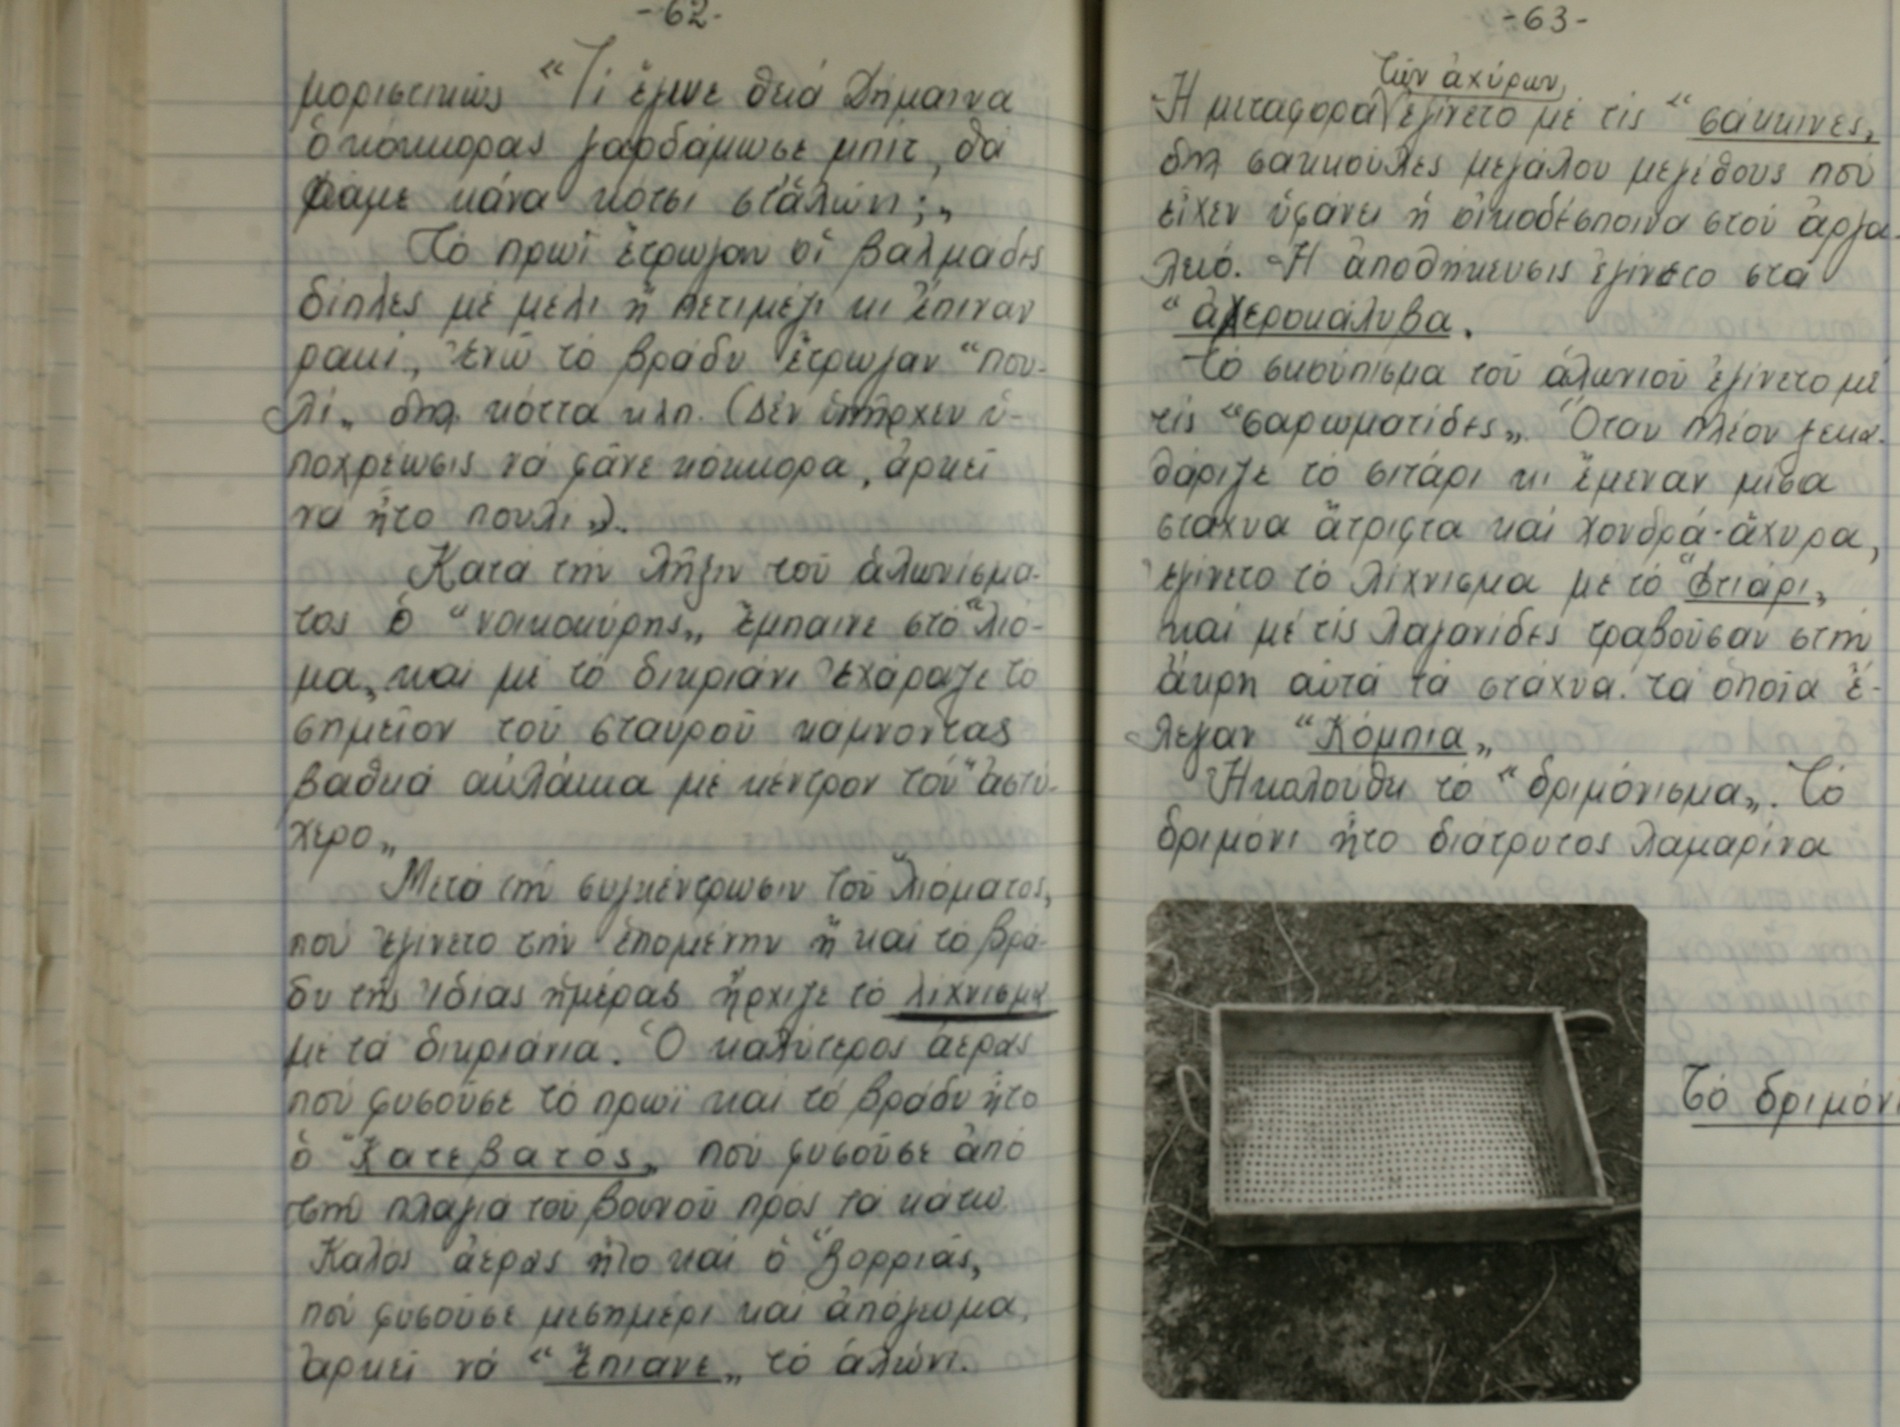 -62-
μοριστικῶς “Τί ἔγινε θειά Δήμαινα
ὁ κόκκορας γαρδάμωσε μπίτ, θά
φᾶμε κάνα κότσι στ'ἁλώνι;„
Τό πρωΐ ἔτρωγαν οἱ βαλμάδες
δίπλες μέ μέλι ἤ πετιμέζι κι ἔπιναν
ρακί, ἐνῶ τό βράδυ ἔτρωγαν “που-
λί„ δηλ κόττα κλπ. (Δέν ὑπῆρχεν ὑ-
ποχρέωσις νά φᾶνε κόκκορα, ἀρκεῖ
νά ἦτο πουλί„).
Κατά τήν λῆξιν τοῦ ἁλωνίσμα-
τος ὁ “νοικοκύρης„ ἔμπαινε στό “λιό-
μα„ καί μέ τό δικριάνι ἐχάραζε τό
σημεῖον τοῦ σταυροῦ κάμνοντας
βαθιά αὐλάκια μέ κέντρον τόν “ἀστύ-
χερο„
Μετά τήν συγκέντρωσιν τοῦ λιόματος,
πού ἐγίνετο τήν ἑπομένην ἤ καί τό βρά-
δυ τῆς ἴδιας ἡμέρας ἤρχιζε τό λίχνισμα
μέ τά δικριάνια. Ὁ καλύτερος ἀέρας
πού φυσοῦσε τό πρωΐ καί τό βράδυ ἦτο
ὁ “Κατεβατός„ πού φυσοῦσε ἀπό
τήν πλαγιά τοῦ βουνοῦ πρός τά κάτω
Καλός ἀέρας ἦτο καί ὁ “Βορριάς,
πού φυσοῦσε μεσημέρι καί ἀπόγευμα,
ἀρκεῖ νά “ἔπιανε„ τό ἁλώνι.
-63-
τῶν ἀχύρων
Ἡ μεταφορά ἐγίνετο μέ τίς “σάκκινες„
δηλ σακκούλες μεγάλου μεγέθους πού
εἶχεν ὑφάνει ἡ οἰκοδέσποινα στόν ἀργα-
λειό. Ἡ ἀποθήκευσις ἐγίνετο στά
“ἀχεροκάλυβα.
Τό σκούπισμα τοῦ ἁλωνιοῦ ἐγίνετο μέ
τίς “σαρωματίδες„. Ὅταν πλέον ξεκα-
θάριζε τό σιτάρι κι ἔμεναν μέσα
στάχυα ἄτριφτα καί χονδρά-ἄχυρα,
ἐγίνετο τό λίχνισμα μέ τό “Φτιάρι„
καί μέ τίς λαγανίδες τραβοῦσαν στήν
ἄκρη αὐτά τά στάχυα. τά ὁποῖα ἔ-
λεγαν “Κόμπια„
Ἠκολούθει τό “δριμόνισμα„. Τό
δριμόνι ἦτο διάτρυτος λαμαρίνα
Τό δριμόνι